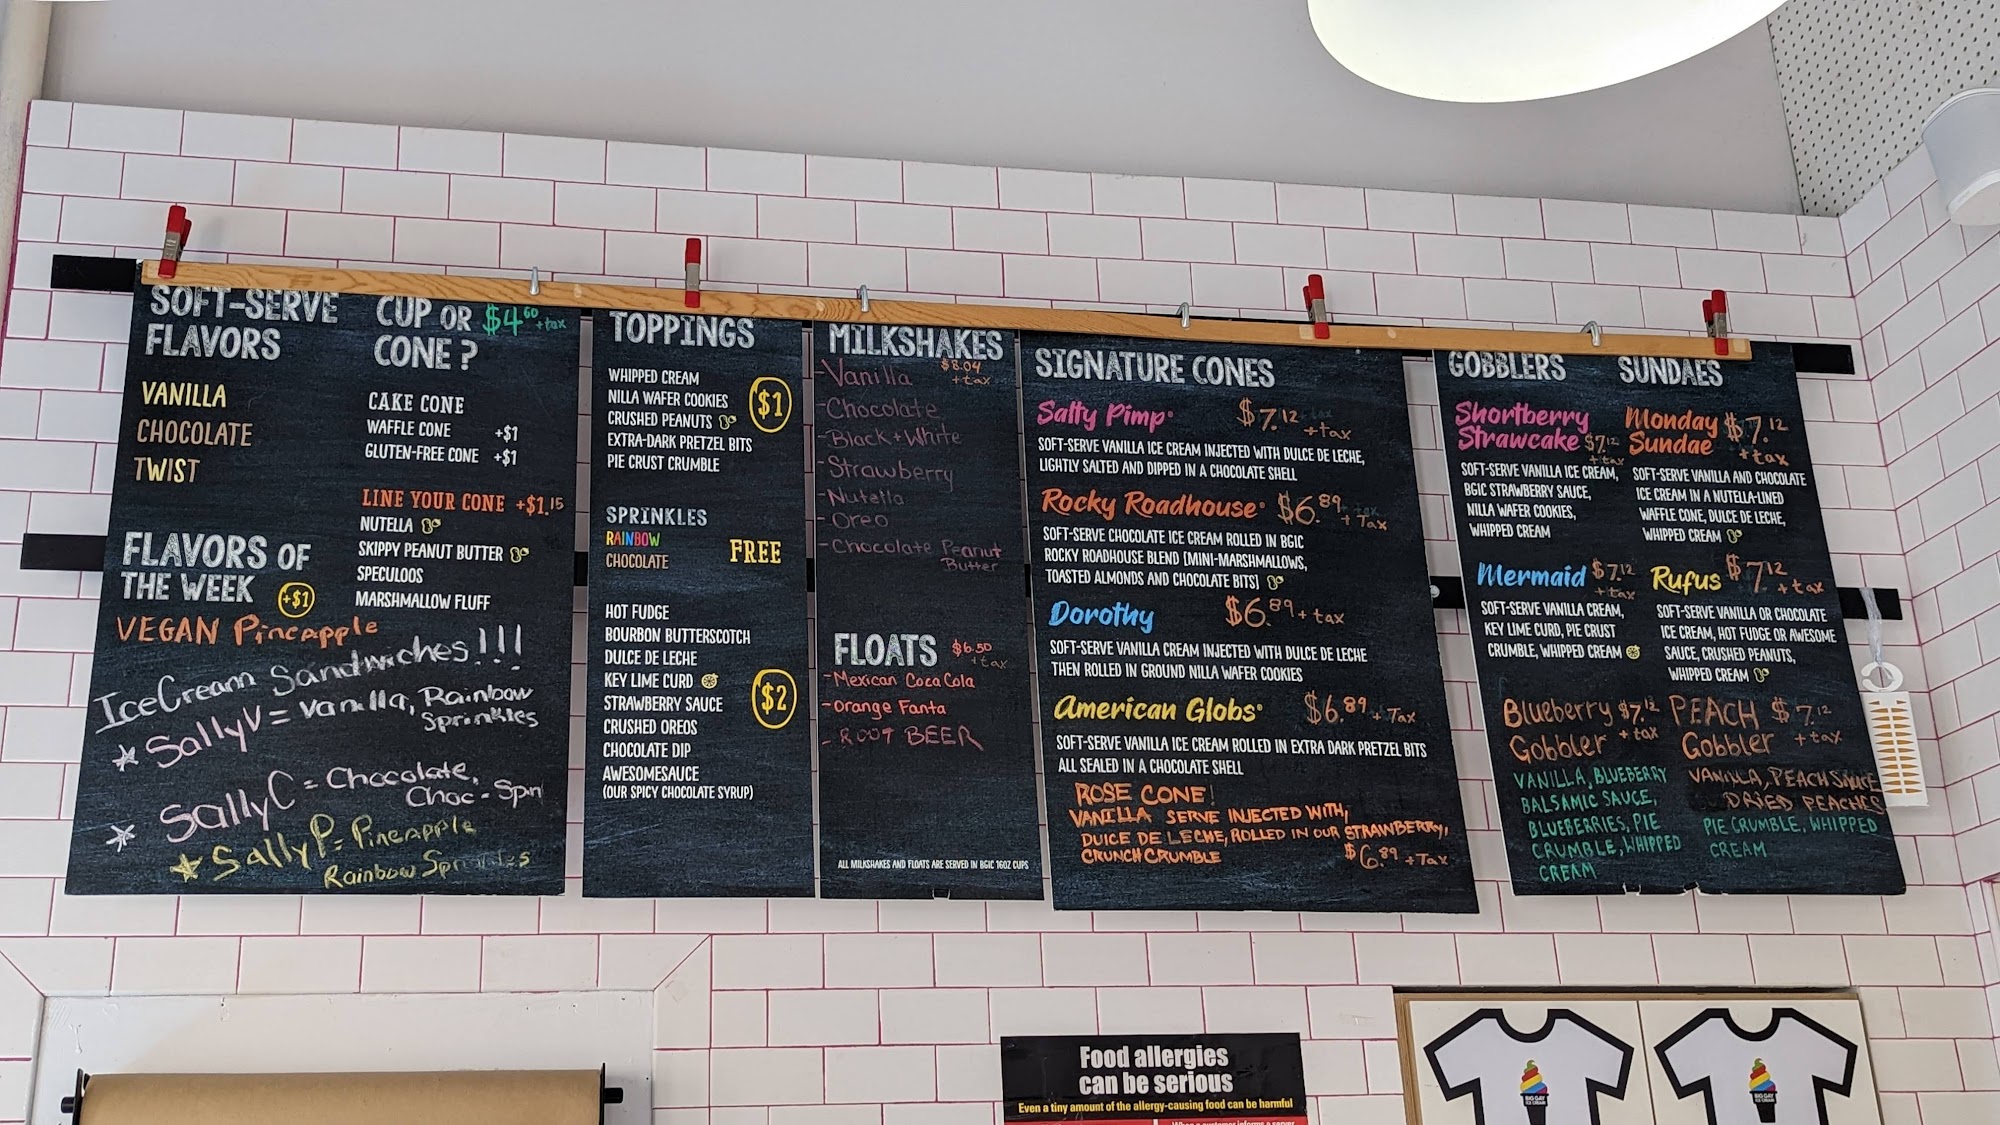 SOFT-SERVE
FLAVORS
VANILLA
CHOCOLATE
TWIST
FLAVORS OF
THE WEEK +$1
VEGAN Pineapple
Ice Cream Sandwiches!!!
Sally V = Vanilla, Rainbow
Sprinkles
Sally C = Chocolate,
Choc - Sprin
Sally P = Pineapple
Rainbow Sprinkles
CUP OR $4.60 + tax
CONE?
CAKE CONE
WAFFLE CONE +$1
GLUTEN-FREE CONE +$1
LINE YOUR CONE +$1.15
NUTELLA
SKIPPY PEANUT BUTTER
SPECULOOS
MARSHMALLOW FLUFF
TOPPINGS
WHIPPED CREAM
NILLA WAFER COOKIES
CRUSHED PEANUTS
EXTRA-DARK PRETZEL BITS
PIE CRUST CRUMBLE
$1
SPRINKLES
RAINBOW
CHOCOLATE
FREE
HOT FUDGE
BOURBON BUTTERSCOTCH
DULCE DE LECHE
KEY LIME CURD
STRAWBERRY SAUCE
CRUSHED OREOS
CHOCOLATE DIP
AWESOMESAUCE
(OUR SPICY CHOCOLATE SYRUP)
$2
MILKSHAKES
$8.04
+ tax
- Vanilla
- Chocolate
- Black + White
- Strawberry
- Nutella
- Oreo
- Chocolate Peanut
Butter
FLOATS $6.50
+ tax
- Mexican Coca Cola
- Orange Fanta
- ROOT BEER
ALL MILKSHAKES AND FLOATS ARE SERVED IN BGIC 16OZ CUPS
SIGNATURE CONES
Salty Pimp $7.12 + tax
SOFT-SERVE VANILLA ICE CREAM INJECTED WITH DULCE DE LECHE,
LIGHTLY SALTED AND DIPPED IN A CHOCOLATE SHELL
Rocky Roadhouse $6.89 + Tax
SOFT-SERVE CHOCOLATE ICE CREAM ROLLED IN BGIC
ROCKY ROADHOUSE BLEND [MINI-MARSHMALLOWS,
TOASTED ALMONDS AND CHOCOLATE BITS]
Dorothy $6.89 + tax
SOFT-SERVE VANILLA CREAM INJECTED WITH DULCE DE LECHE
THEN ROLLED IN GROUND NILLA WAFER COOKIES
American Globs $6.89 + Tax
SOFT-SERVE VANILLA ICE CREAM ROLLED IN EXTRA DARK PRETZEL BITS
ALL SEALED IN A CHOCOLATE SHELL
ROSE CONE!
VANILLA SERVE INJECTED WITH,
DULCE DE LECHE, ROLLED IN OUR STRAWBERRY,
CRUNCH CRUMBLE $6.89 + Tax
GOBBLERS
Shortberry
Strawcake $7.12
+ tax
SOFT-SERVE VANILLA ICE CREAM,
BGIC STRAWBERRY SAUCE,
NILLA WAFER COOKIES,
WHIPPED CREAM
Mermaid $7.12
+ tax
SOFT-SERVE VANILLA CREAM,
KEY LIME CURD, PIE CRUST
CRUMBLE, WHIPPED CREAM
Blueberry $7.12
Gobbler + tax
VANILLA, BLUEBERRY
BALSAMIC SAUCE,
BLUEBERRIES, PIE
CRUMBLE, WHIPPED
CREAM
SUNDAES
Monday $7.12
Sundae + tax
SOFT-SERVE VANILLA AND CHOCOLATE
ICE CREAM IN A NUTELLA-LINED
WAFFLE CONE, DULCE DE LECHE,
WHIPPED CREAM
Rufus $7.12
+ tax
SOFT-SERVE VANILLA OR CHOCOLATE
ICE CREAM, HOT FUDGE OR AWESOME
SAUCE, CRUSHED PEANUTS,
WHIPPED CREAM
PEACH $7.12
Gobbler + tax
VANILLA, PEACH SAUCE
DRIED PEACHES
PIE CRUMBLE, WHIPPED
CREAM
Food allergies
can be serious
Even a tiny amount of the allergy-causing food can be harmful
When a customer informs a server
BIG GAY
ICE CREAM
BIG GAY
ICE CREAM